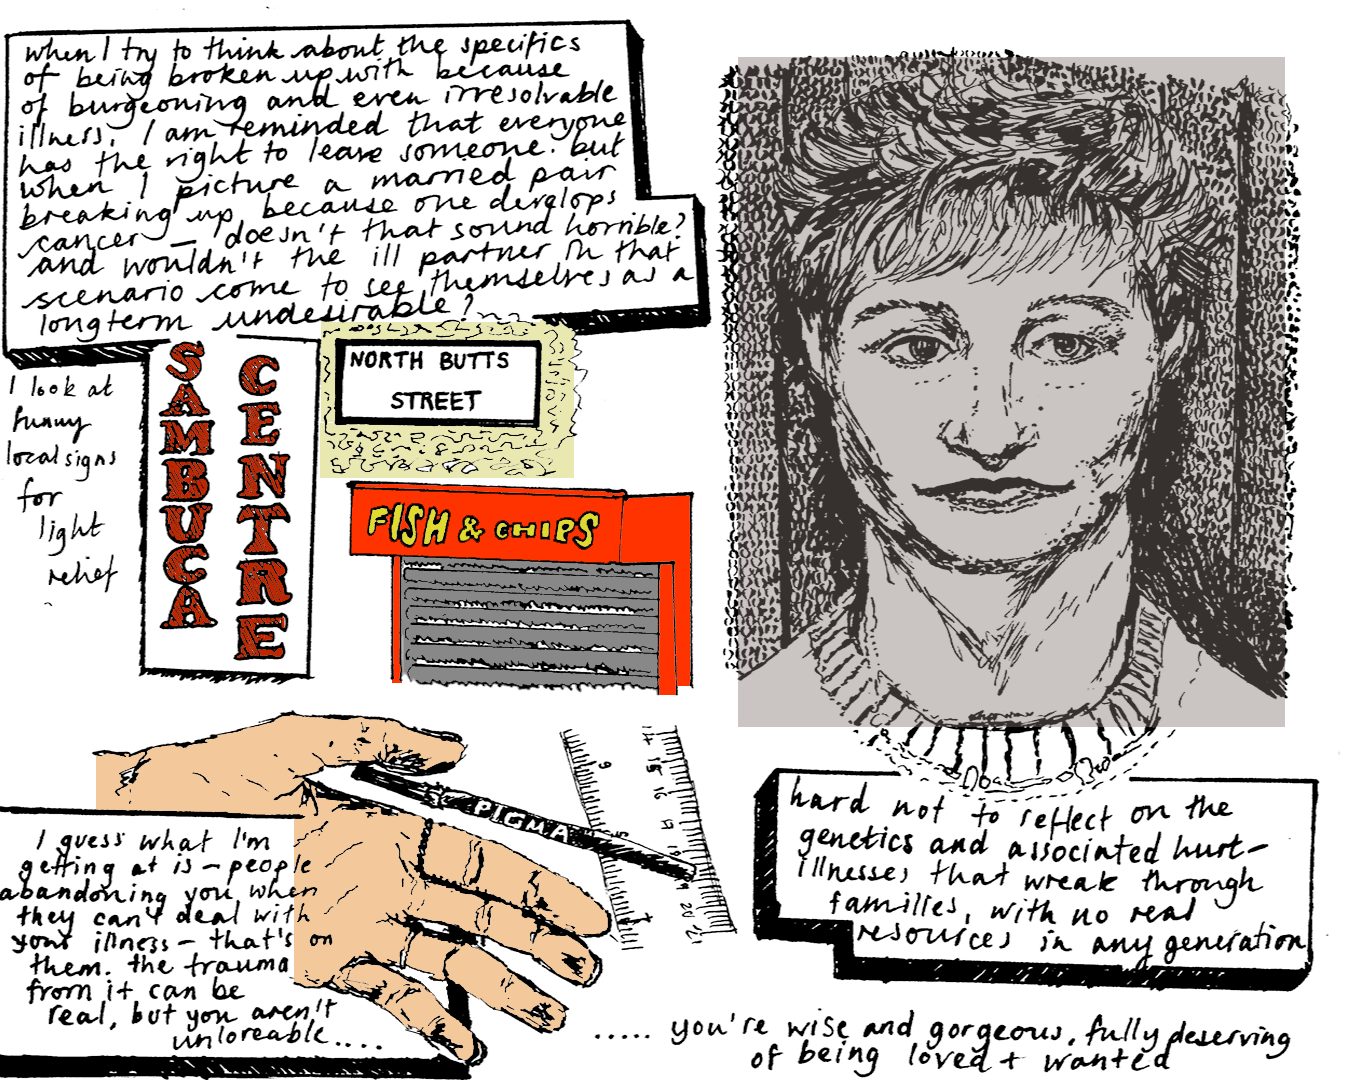 when I try to think about the specifics
of being broken up with because
of burgeoning and even irresolvable
illness, I am reminded that everyone
has the right to leave someone. but
when I picture a married pair
breaking up because one develops
cancer — doesn't that sound horrible?
and wouldn't the ill partner in that
scenario come to see themselves as a
longterm undesirable?
I look at
funny
local signs
for
light
relief
SAMBUCA
CENTRE
NORTH BUTTS
STREET
FISH & CHIPS
PIGMA
9
5
14
15
16
19
20
21
I guess what I'm
getting at is — people
abandoning you when
they can't deal with
your illness — that's on
them. the trauma
from it can be
real, but you aren't
unloveable....
hard not to reflect on the
genetics and associated hurt —
illnesses that wreak through
families, with no real
resources in any generation
..... you're wise and gorgeous, fully deserving
of being loved + wanted